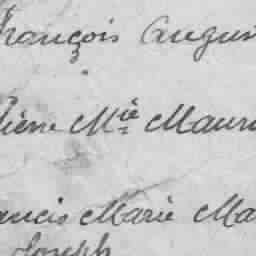 François Augus
Pierre M^ie Maur
ancis Marie Ma
Joseph